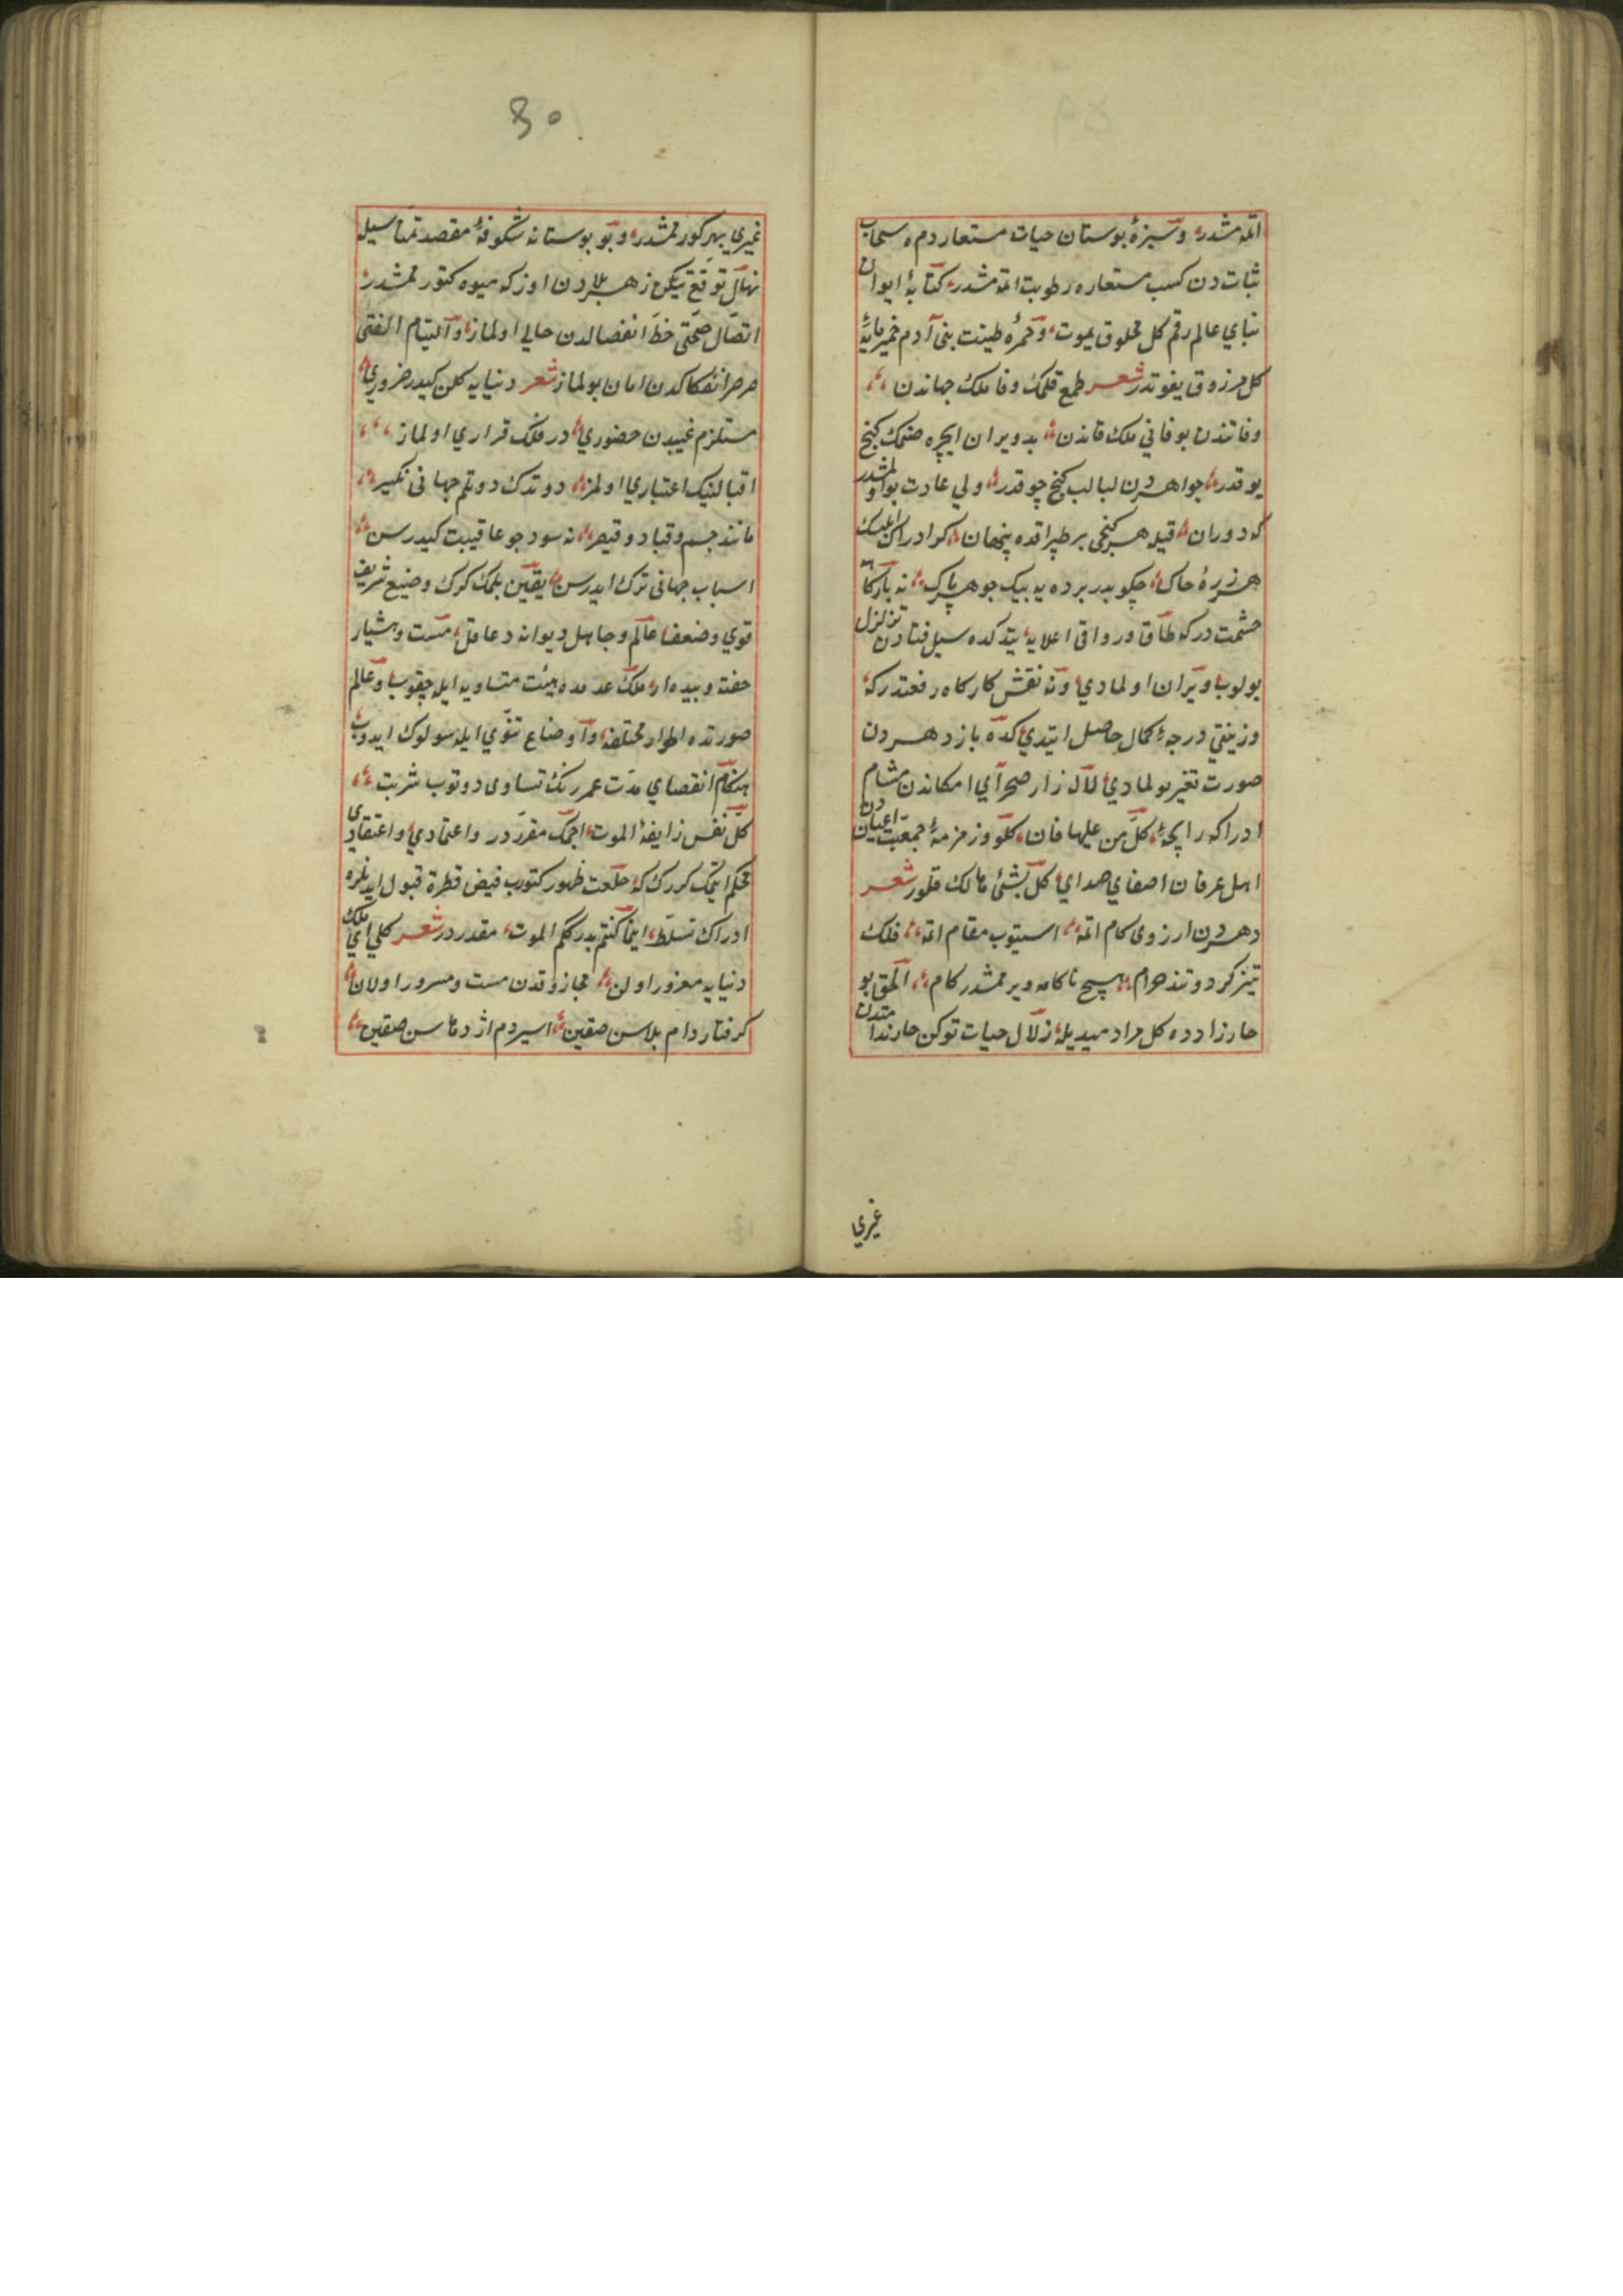 اتمه مشدر وسبزهٔ بوستان حیات مستعار دم ه سحاب
ثبات دن کسب مستعاره رطوبت اتمه مشدر کتابهٔ ایوان
بنای عالم رقم کل مخلوق یموت وخمرهٔ طینت بنی آدم خمیرمایهٔ
کل مرزوق یفوتدر شعر طمع قلمک وفا ملک جهاندن
وفا تندن بو فانی ملک فاندن بد ویران ایچره صنمک کنج
یوقدر جواهردن لبالب کنج چوقدر ولی عادت بولمشدر
که دوران قیله هر کنجی بر طپراقده پنهان کر ادراک
هر زرهٔ خاک چکوبدر برده یه بیک جوهر پاک نه بارکاه
حشمت درکه طاق ورواق اعلایه یتدکده سیل فنادن تزلزل
بولوب ویران اولمادی ونه نقش کارکاه رفعتدرکه
وزینتی درجهٔ کمال حاصل ایتدی کده باز دهردن
صورت تغیر بولمادی لاله زار صحرای امکاندن مشام
ادراکه رایحهٔ کل من علیها فان کلو وزمزمهٔ جمعیت اعیان دن
اهل عرفان اصغای صدای کل شئ هالک قلور شعر
دهردن ارزوی کام اتمه استیوب مقام اتمه فلک
تیزکرد وتند خرام هیچ ناکامه ویرممشدر کام الحق بو
خارزا رده کل مراد میدیله زلال حیات توکن خار ندامتدن
غیری
٥٠
غیری بهر کورممشدر وبو بوستانه شکوفهٔ مقصد تمناسیله
نهال توقع تیکن زهر بلادن اوزکه میوه کتورممشدر
اتصال صحتی خط انفصالدن خالی اولماز والتیام الفتی
صرصر انفکاکدن امان بولماز شعر دنیایه کلن کیدر ضروری
مستلزم غیبدن حضوری در فلک قراری اولماز
اقبالنیک اعتباری اولمز دوتدک دوتم جهانی نکیر
مانند جسم وقباد وقیصر نه سود جو عاقیبت کیدرسن
اسباب جهانی ترک ایدرسن یقین بلمک کرک وضیع شریف
قوی وضعف عالم وجاهل دیوانه دعاقل مست وهشیار
خفته وبیدار ملک عدمده هیئت متساویه ایله چقوب وعالم
صورتده اطوار مختلفه واوضاع تنوی ایله سولوک ایدوب
هنکام انقصای مدت عمر رنک تساوی دوتوب شربت
کل نفس زایفة الموت اجمک مقرردر واعتمادی واعتقادی
محکم ایتمک کررک که خلعت ظهور کتورب فیض قطرة قبول ایدنلره
ادراک تسلط اینما کنتم یدرککم الموت مقدردر شعر کلی ای ملک
دنیایه مغرور اولن مجاز وقدن مست ومسرور اولان
کرفتار دام بلاسن صقین اسیر دم اژدهاسن صقین